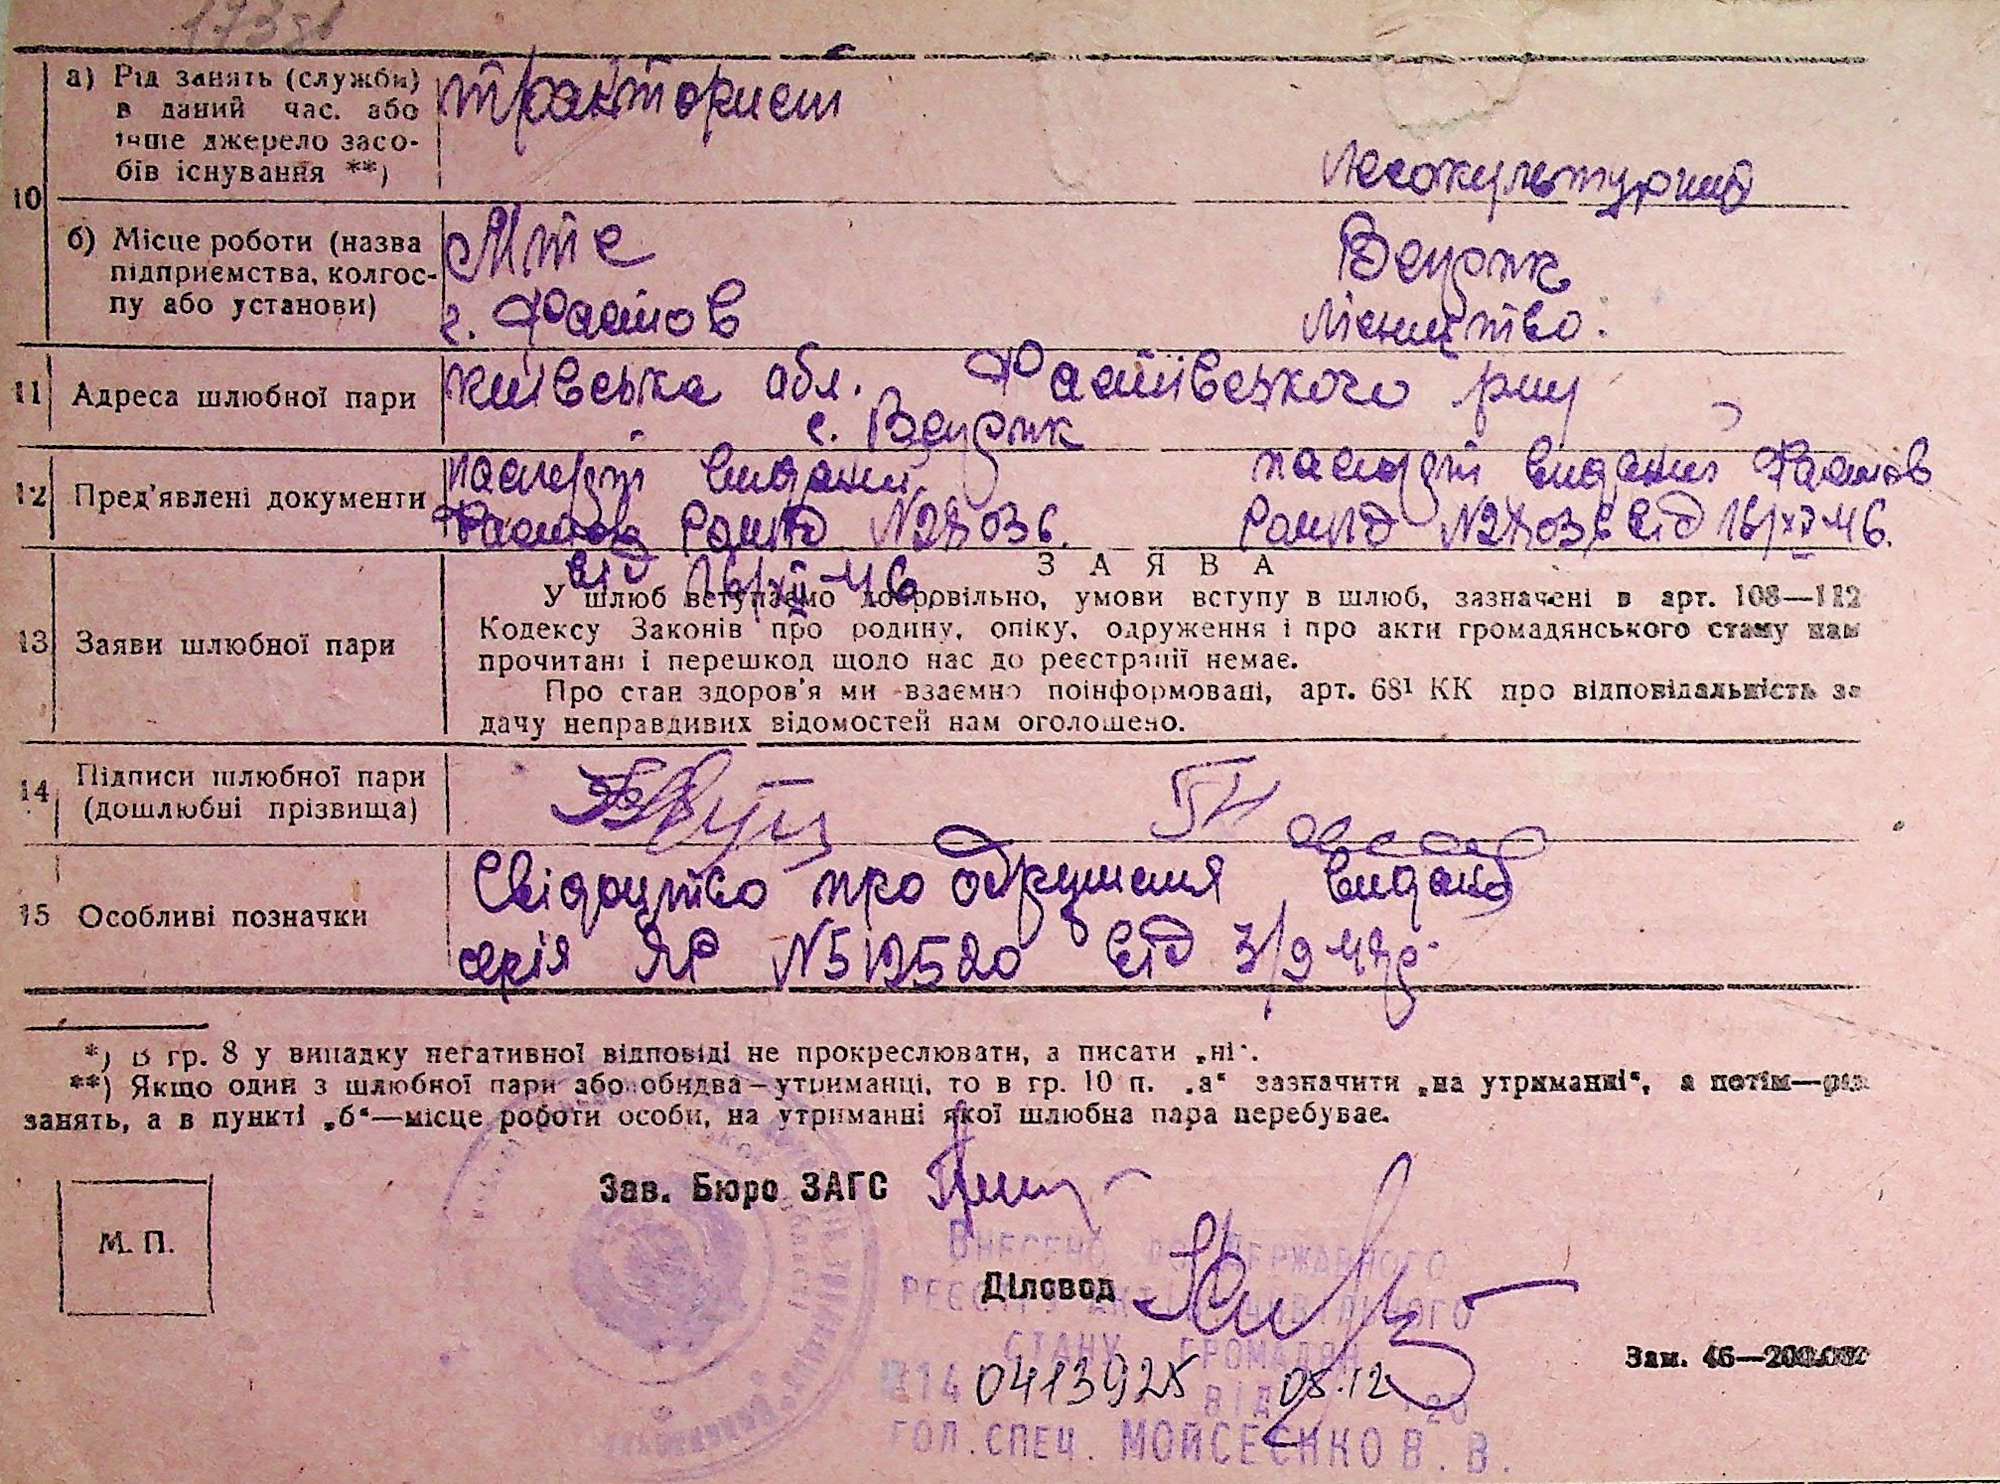 173 зв
10
а) Рід занять (служби)
в даний час. або
інше джерело засо-
бів існування **)
тракторист
лесокультурний
б) Місце роботи (назва
підприємства, колгос-
пу або установи)
Мтс
г. Фастов
Веприк
лісництво.
11 Адреса шлюбної пари
Київська обл. Фастівського р-ну
с. Веприк
12 Пред'явлені документи
паспорт виданий
Фастов N27036.
від 16/XII-46
паспорт виданий Фастов
від 16/XII-46.
13 Заяви шлюбної пари
ЗАЯВА
У шлюб вступаємо добровільно, умови вступу в шлюб, зазначені в арт. 108—112
Кодексу Законів про родину, опіку, одруження і про акти громадянського стану нам
прочитані і перешкод щодо нас до реєстрації немає.
Про стан здоров'я ми взаємно поінформовані, арт. 68¹ КК про відповідальність за
дачу неправдивих відомостей нам оголошено.
14 Підписи шлюбної пари
(дошлюбні прізвища)
15 Особливі позначки
Свідоцтво про одруження видано
серія ЯР N512520 від 3/9-47р.
*) В гр. 8 у випадку негативної відповіді не прокреслювати, а писати „ні“.
**) Якщо один з шлюбної пари або обидва—утриманці, то в гр. 10 п. „а“ зазначити „на утриманні“, а потім—рід
занять, а в пункті „б“—місце роботи особи, на утриманні якої шлюбна пара перебуває.
М. П.
Зав. Бюро ЗАГС
Діловод
ВНЕСЕНО ДО ДЕРЖАВНОГО
РЕЄСТРУ АКТІВ ЦИВІЛЬНОГО
СТАНУ ГРОМАДЯН
ВІД 05.12
ГОЛ. СПЕЦ. МОЙСЕЄНКО В. В.
Зам. 46—200.000